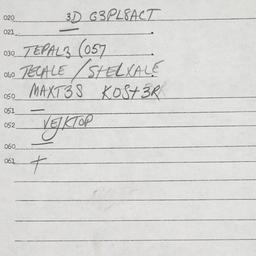 020 3D G3PL8ACT
021
030 TEPAL3 (057
040 TECALE / STELXALE
050 MAXT3S KOST3R
051 —
052 VEJKTOP
060
061 +